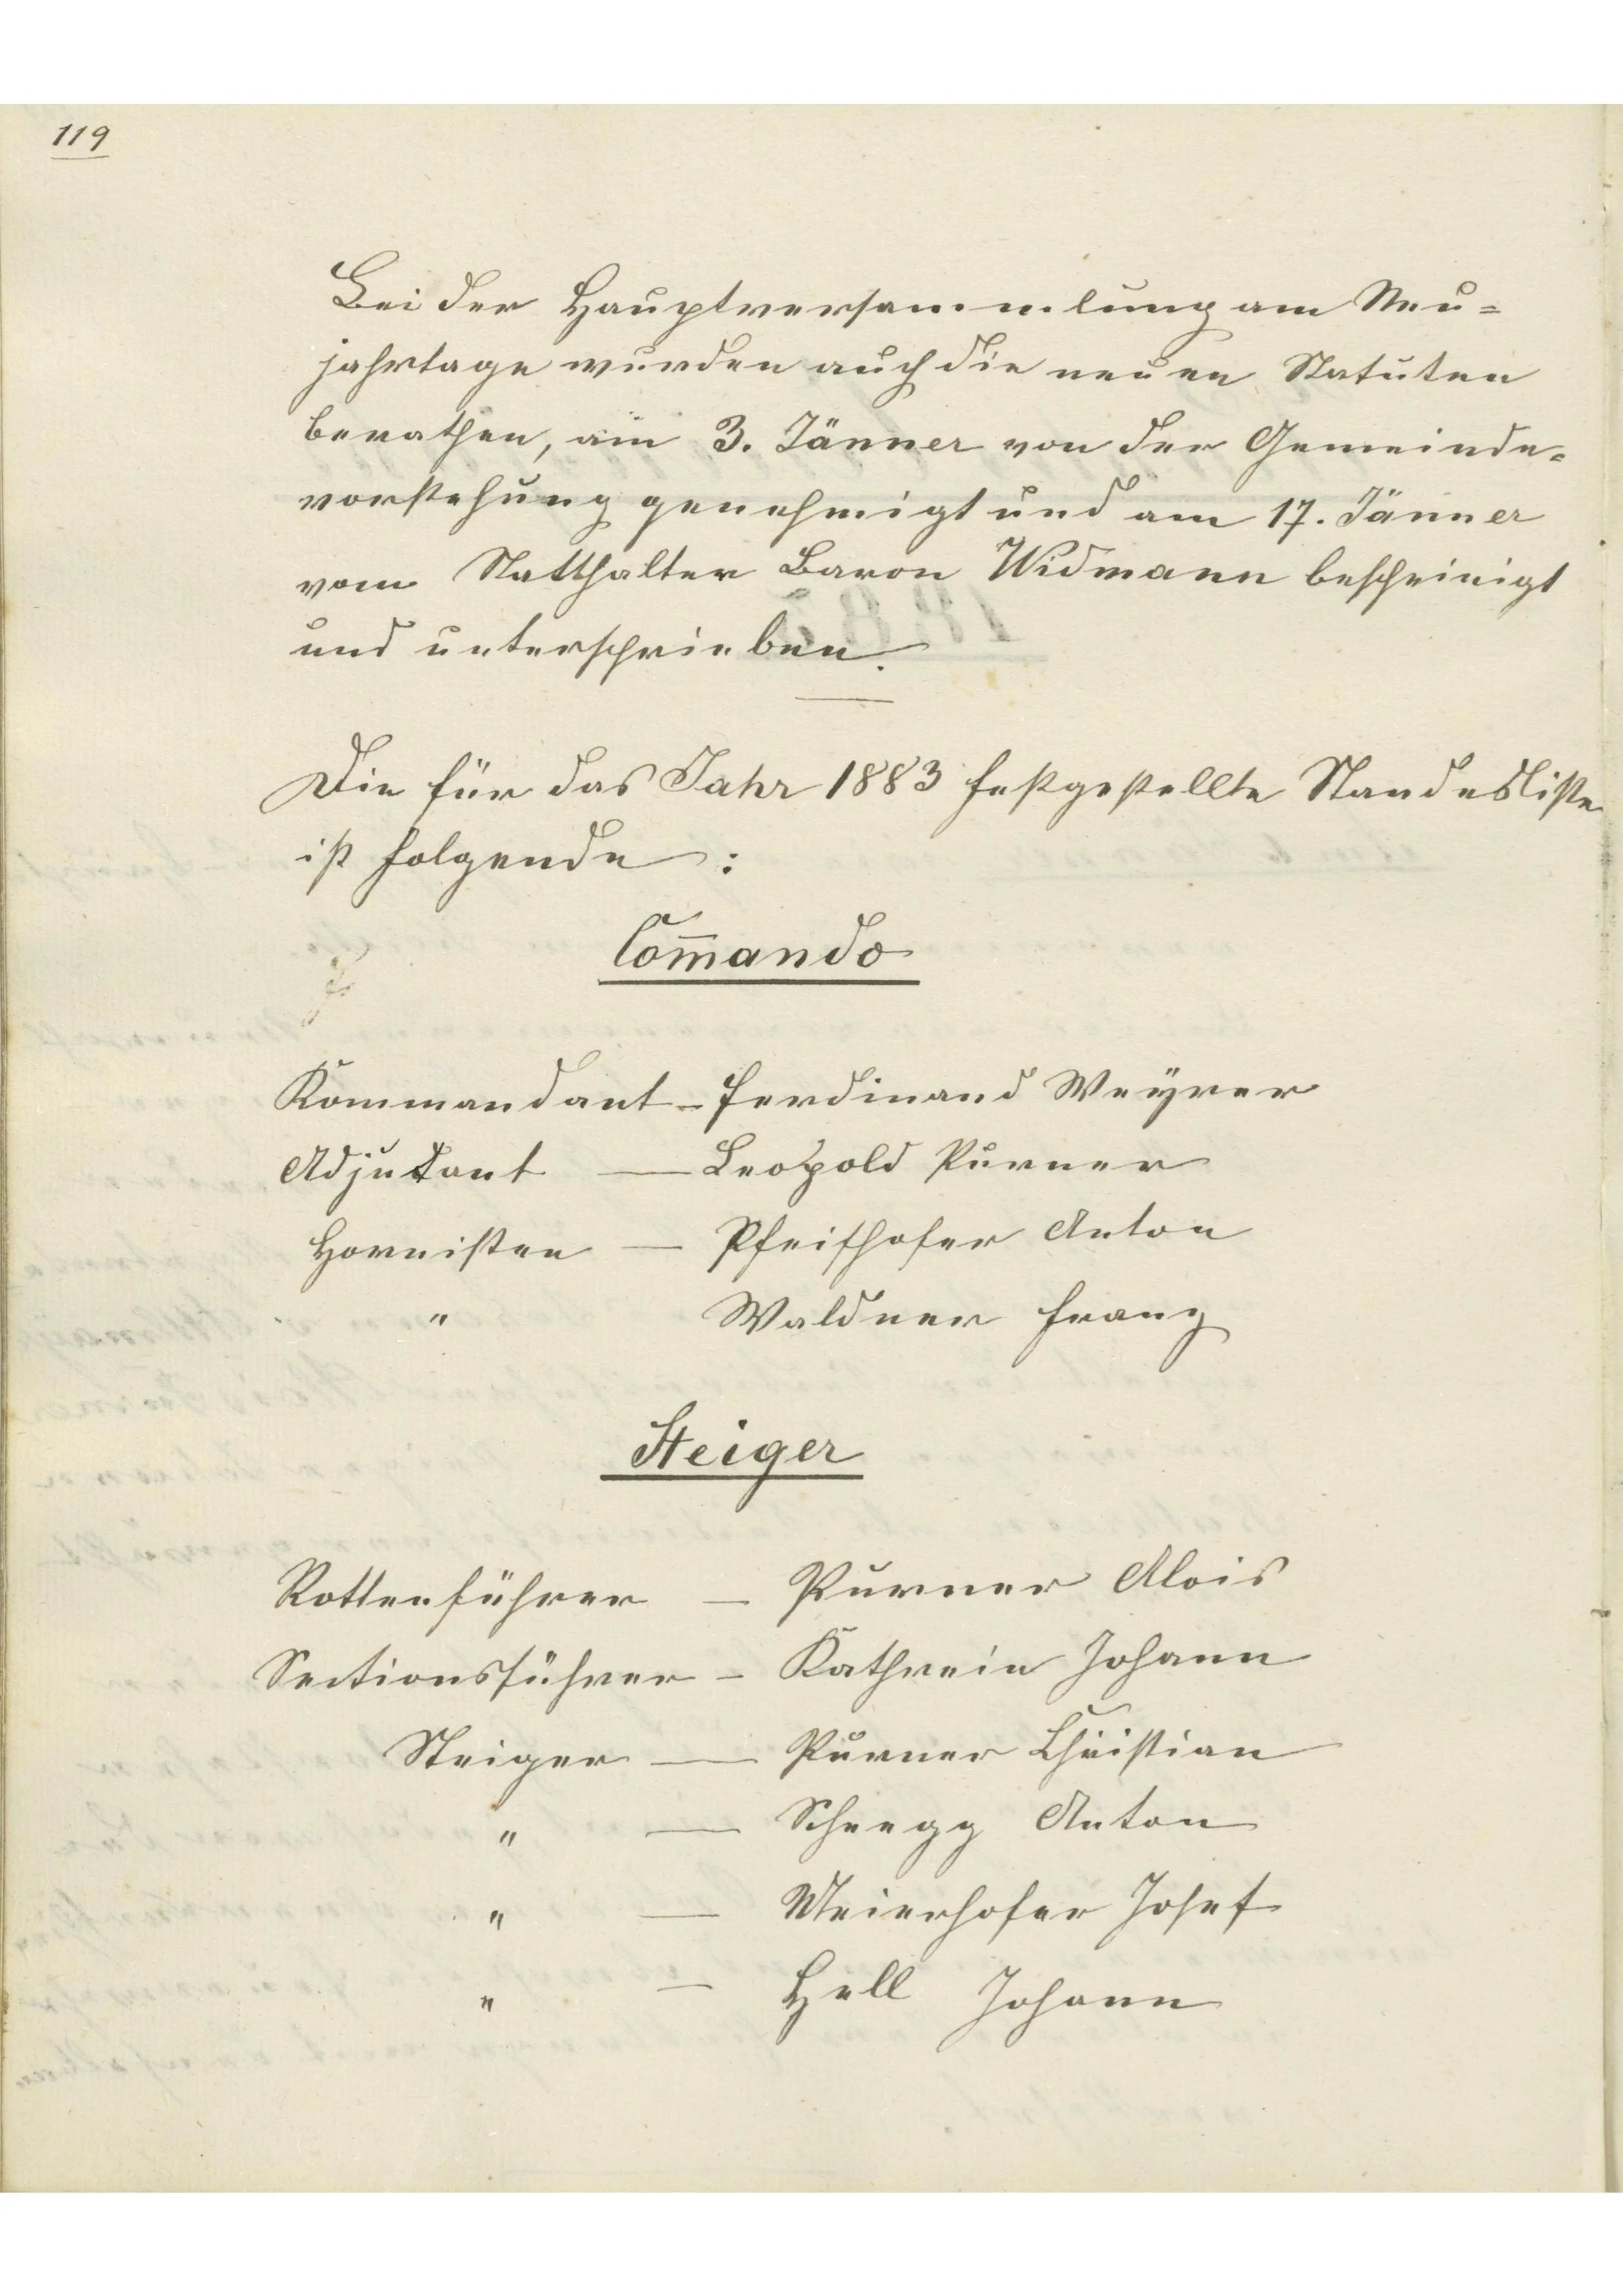 119
Bei der Hauptversammlung am Neu=
jahrtage wurden auch die neuen Statuten
berathen, am 3. Jänner von der Gemeinde=
vorstehung genehmigt und am 17. Jänner
vom Statthalter Baron Widmann bescheinigt
und unterschrieben.
Die für das Jahr 1883 festgestellte Standesliste
ist folgende :
Com̄ando
Kommandant - Ferdinand Weyrer
Adjutant — Leopold Purner
Hornisten — Pfeifhofer Anton
" Waldner Franz
Steiger
Rottenführer — Purner Alois
Sectionsführer - Kathrein Johann
Steiger — Purner Christian
" — Schnegg Anton
" — Meierhofer Josef
" — Hell Johann